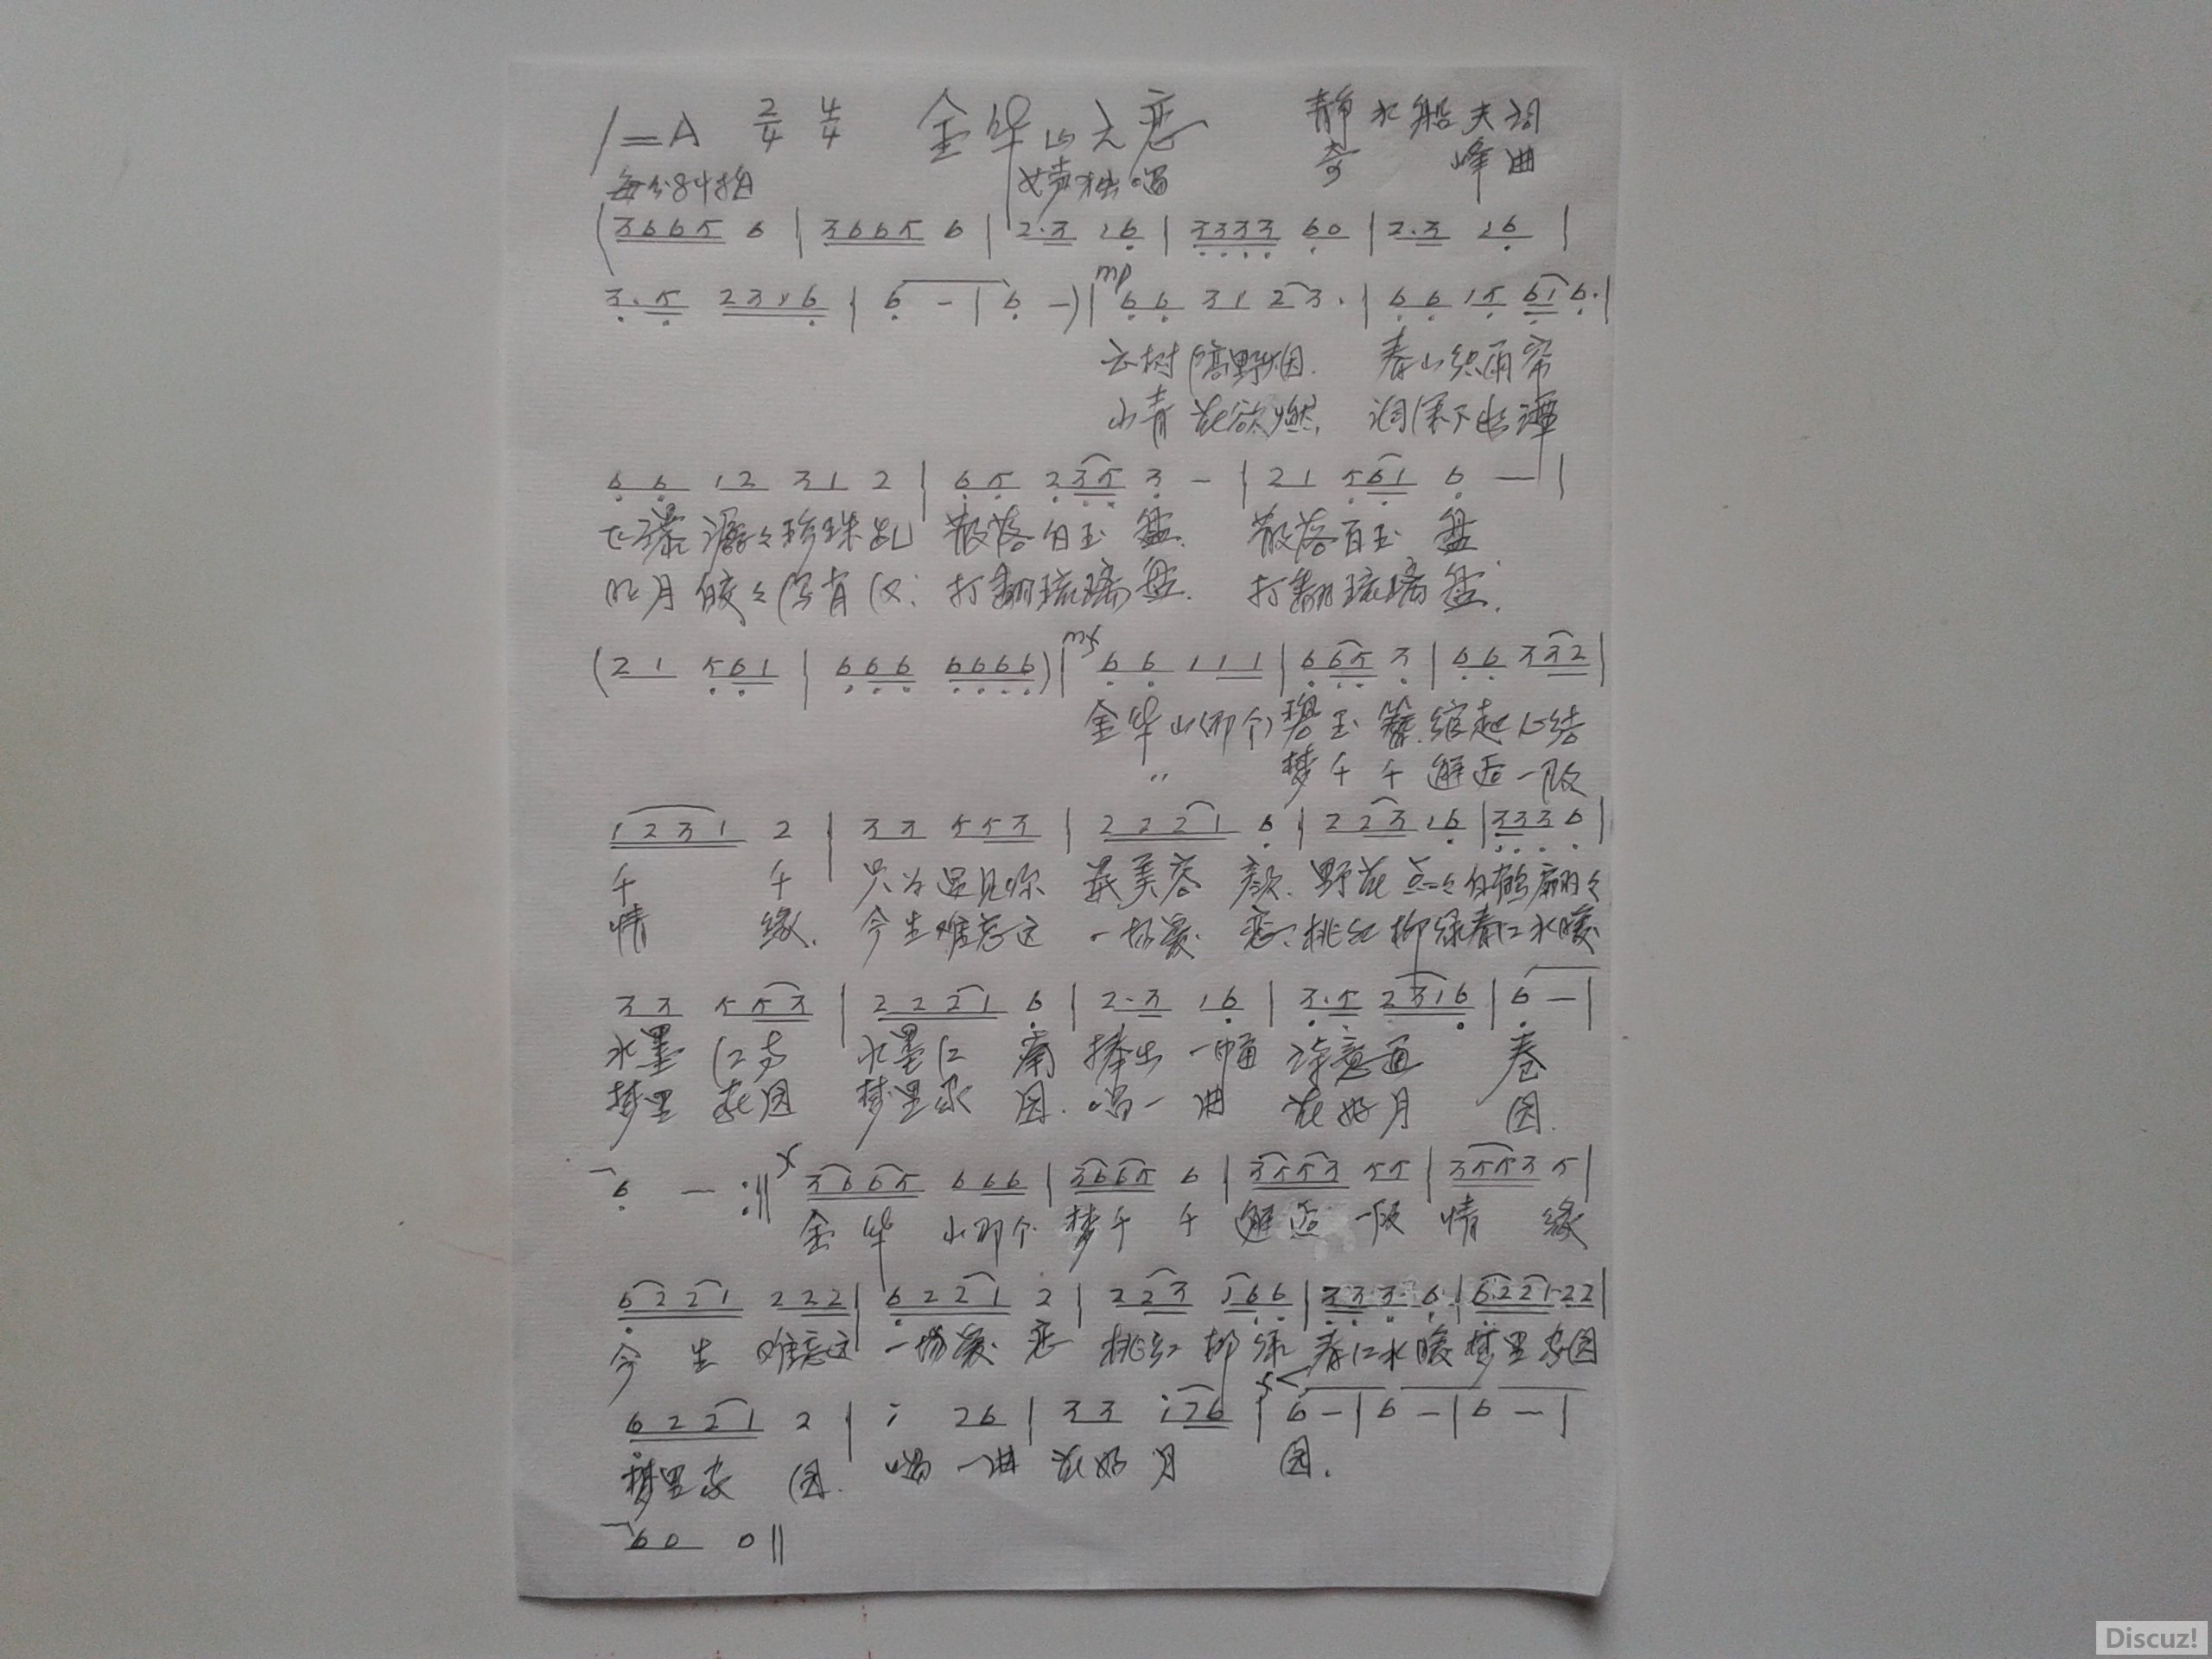 1=A 2/4 4/4 金华山之恋 静水船夫词
每分84拍 女声独唱 奇峰曲
(3665 6 | 3665 6 | 2·3 16 | 3333 60 | 2·3 16 |
3·5 2316 | 6 - | 6 -) | mp 66 31 23· | 66 15 616· |
云树隔野烟. 春山织雨帘
山青花欲燃, 润深下长潭
66 12 31 2 | 65 235 3 - | 21 561 6 - |
飞瀑潺々珍珠乱 散落白玉盘. 散落百玉盘
明月皎々 打翻琉璃盘. 打翻琉璃盘.
(21 561 | 666 6666) | mf 66 111 | 665 3 | 66 332 |
金华山(那个)碧玉簪.绾起心结
〃 梦千千 邂逅一段
1231 2 | 33 553 | 2221 6 | 223 16 | 333 6 |
千千 只为遇见你 最美容颜. 野花点々白鹤翩々
情缘. 今生难忘这 一场爱恋. 桃红柳绿春江水暖
33 553 | 2221 6 | 2·3 16 | 3·5 2316 | 6 - |
水墨江南 水墨江南 捧出一幅 诗意画卷
梦里家园 梦里家园. 唱一曲 花好月圆.
6 - :‖ f 3665 666 | 3665 6 | 3553 55 | 3553 5 |
金华山那个 梦千千 邂逅一段 情缘
6221 222 | 6221 2 | 223 166 | 333 6 | 6221 22 |
今生难忘这 一场爱恋 桃红柳绿 春江水暖 梦里家园
6221 2 | i 26 | 33 i26 | f< 6 - | 6 - | 6 - |
梦里家园. 唱一曲 花好月圆.
60 0 ‖
Discuz!